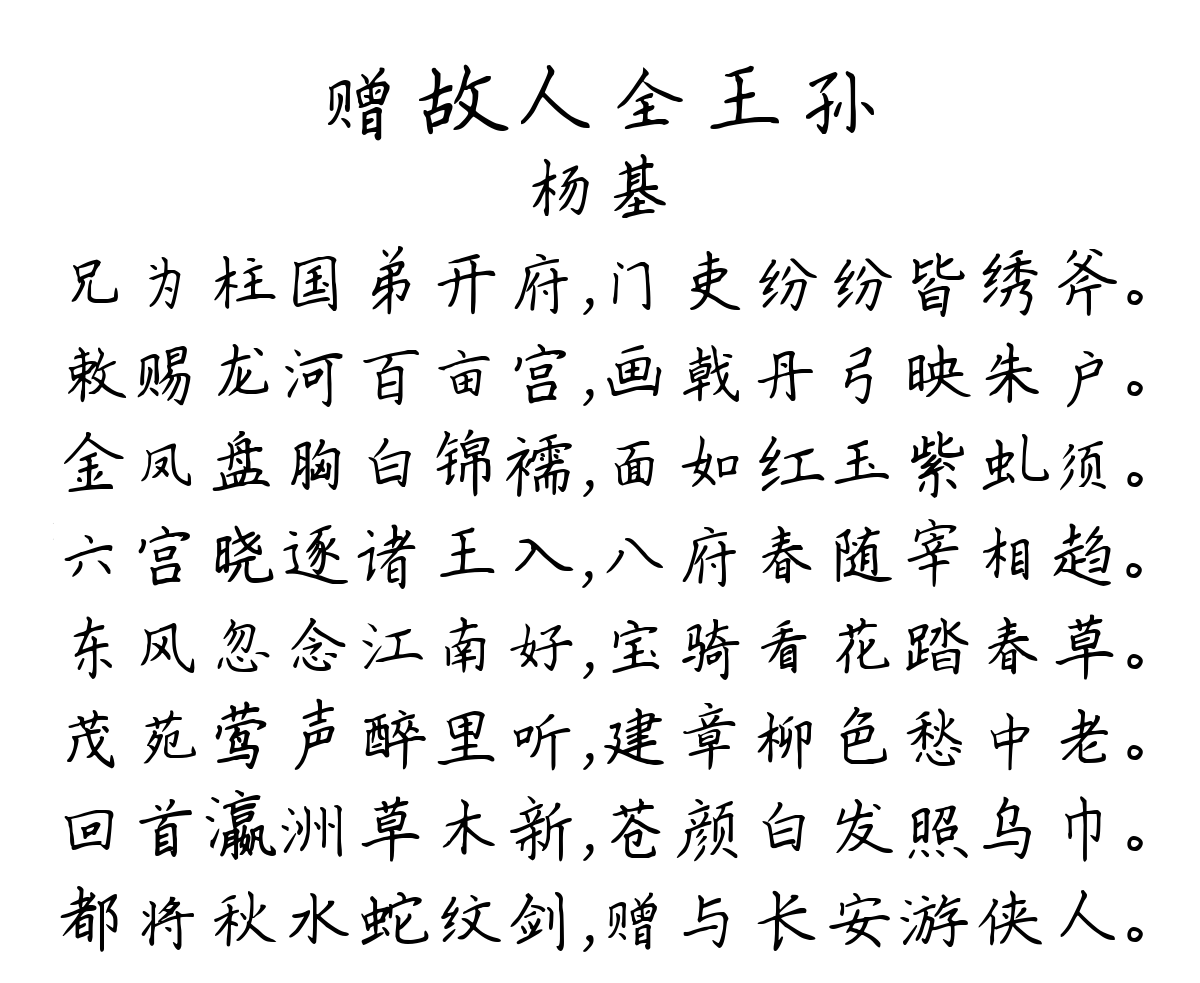 赠故人全王孙
杨基
兄为柱国弟开府,门吏纷纷皆绣斧。
敕赐龙河百亩宫,画戟丹弓映朱户。
金凤盘胸白锦襦,面如红玉紫虬须。
六宫晓逐诸王入,八府春随宰相趋。
东风忽念江南好,宝骑看花踏春草。
茂苑莺声醉里听,建章柳色愁中老。
回首瀛洲草木新,苍颜白发照乌巾。
都将秋水蛇纹剑,赠与长安游侠人。